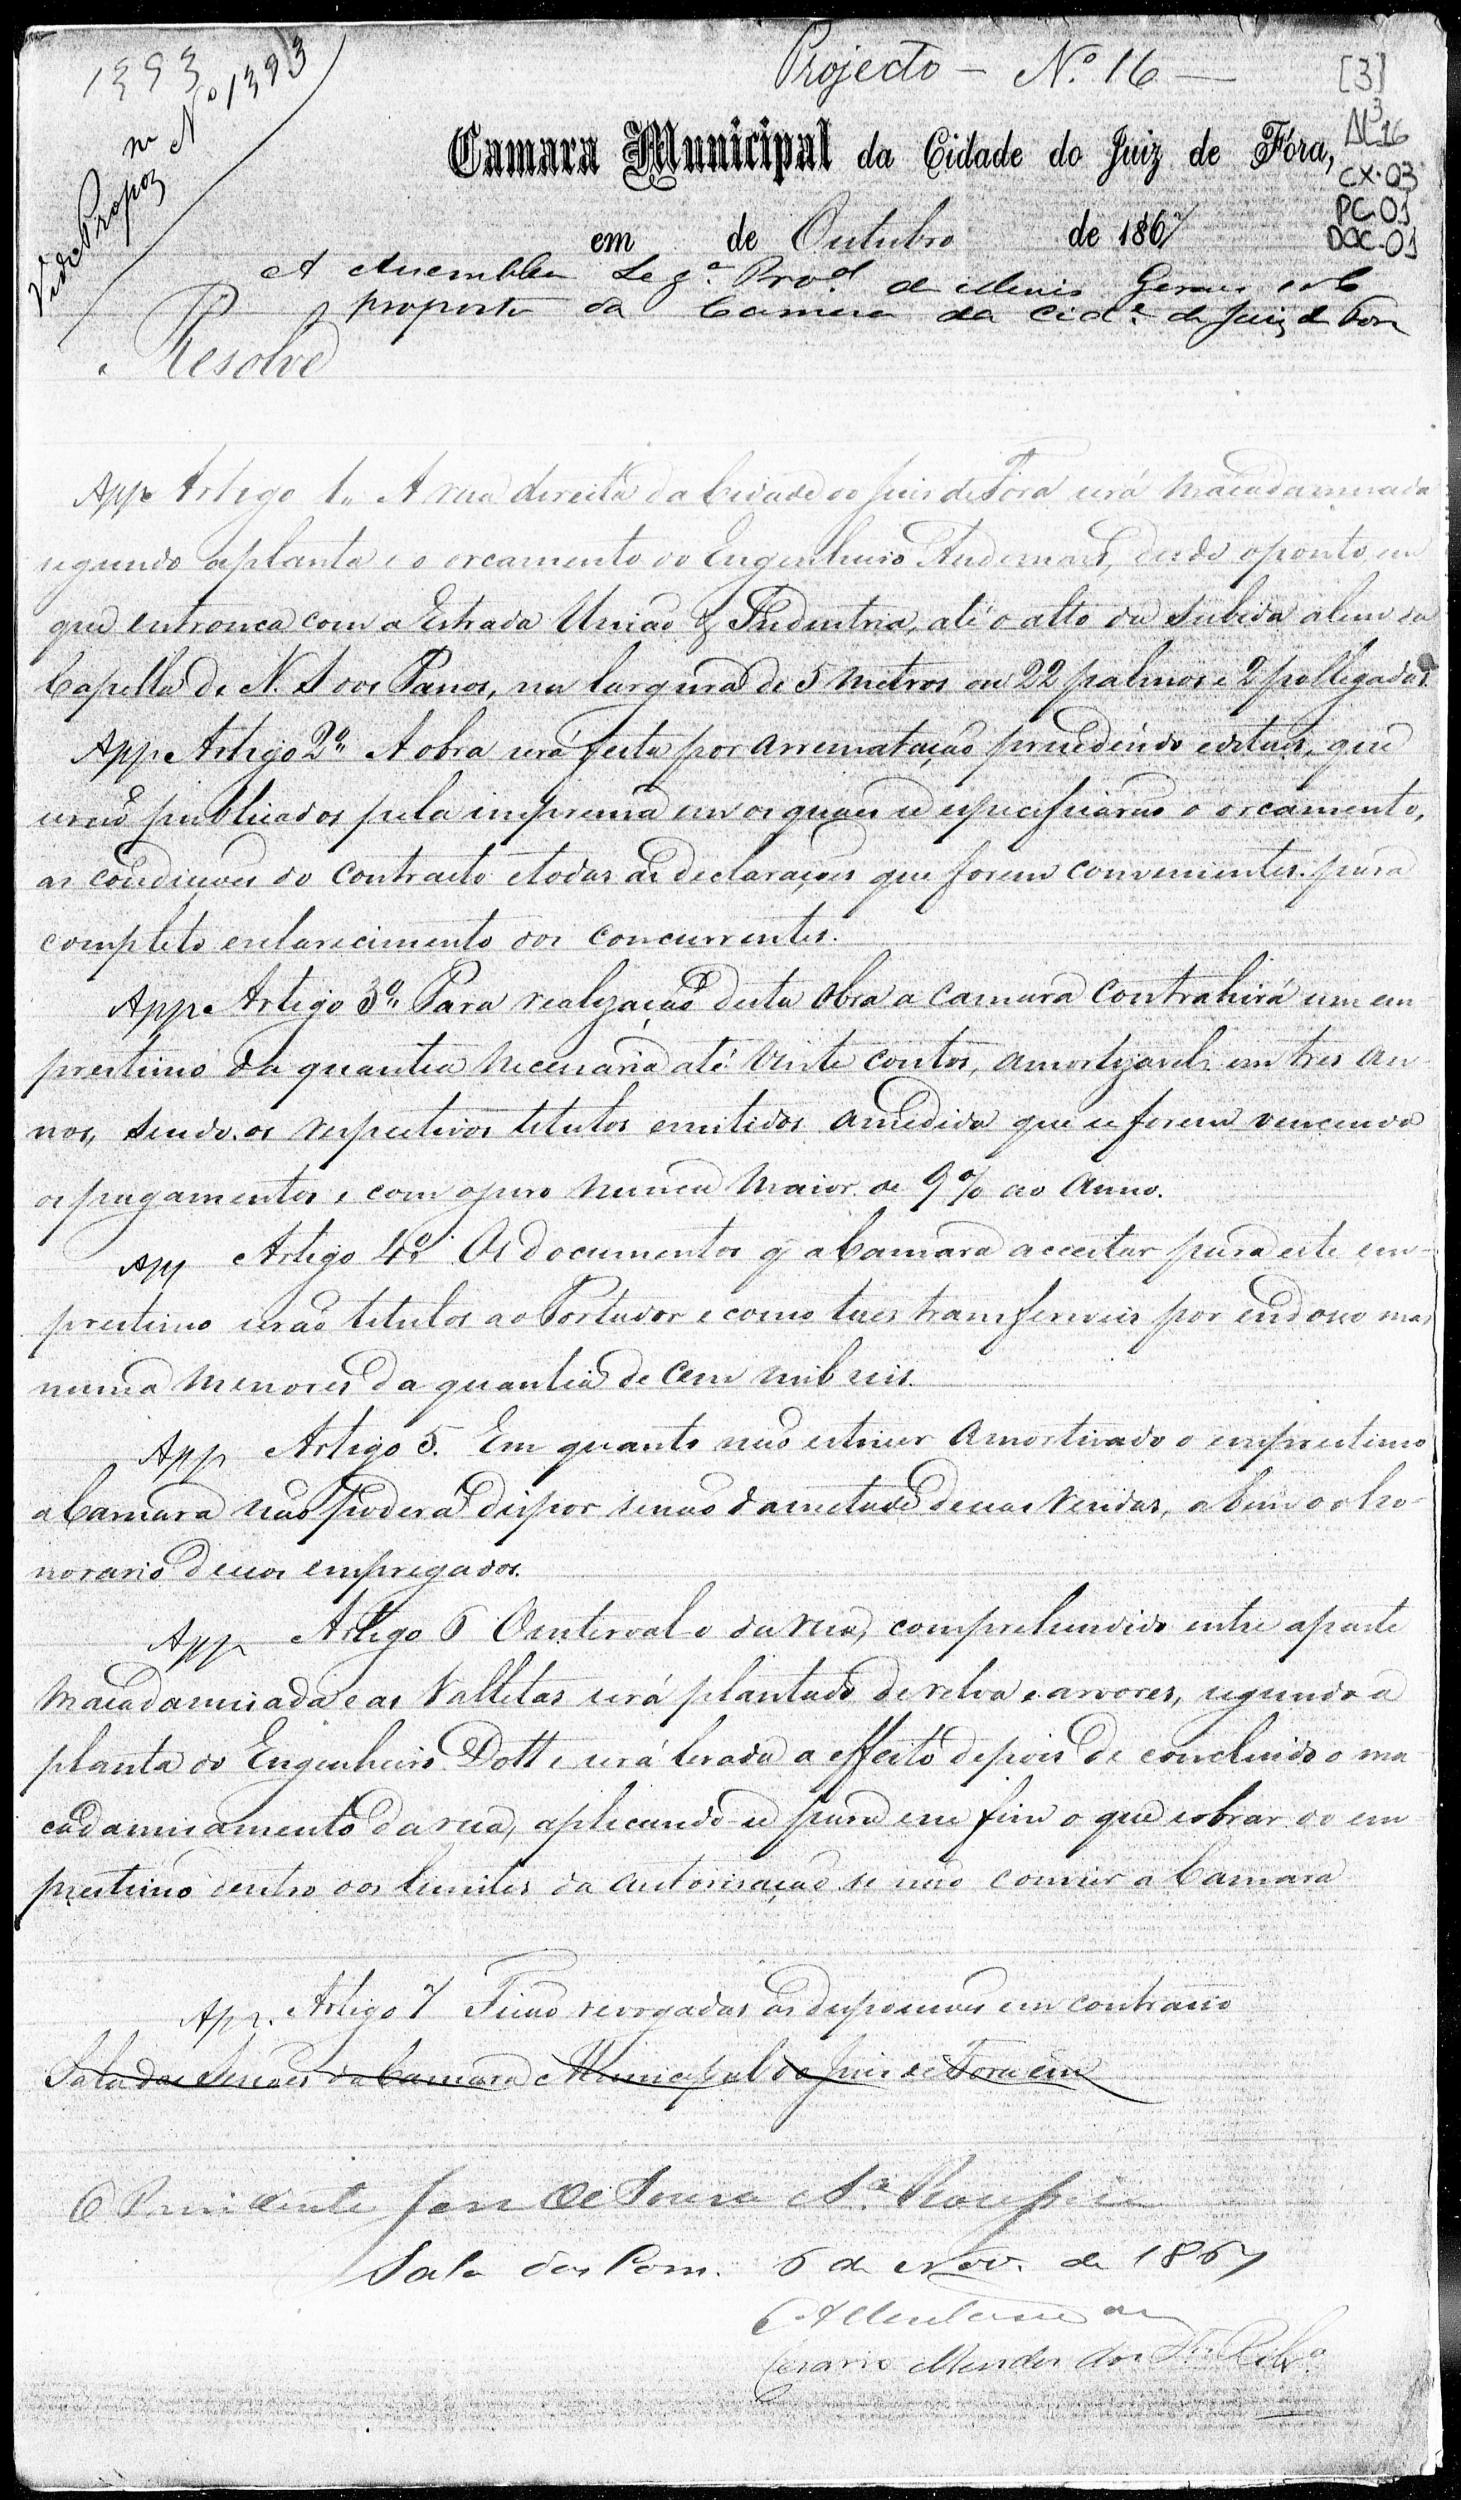 1393
Vide Propoz
na Nº 1393
Projecto — Nº 16 —
[3]
Nº 16
3
CX-03
PC-01
DOC-01
Camara Municipal da Cidade do Juiz de Fóra,
em de Outubro de 1867
A Assemblea Legª. Provᵃˡ. de Minas Geraes sob
proposta da Camera da Cidᵉ. de Juiz de Fora
Resolve
App Artigo 1.. A rua direita da Cidade do Juis de Fora será Macadamisada
segundo a planta e o orcamento do Engenheiro Andernais, desde o ponto, em
que entronca com a Estrada União & Industria, até o alto da subida alem da
Capella de N. S dos Passos, na largura de 5 metros ou 22 palmos e 2 pollegadas.
App. Artigo 2º.. A obra será feita por arrematação precedendo editaes, que
serão publicados pela imprensa em os quaes se especificarão o orcamento,
as condicoes do contracto e todas as declarações que forem convenientes para
completo esclarecimento dos concurrentes.
App. Artigo 3º.. Para realização desta obra a camara contrahirá um em
prestimo da quantia necessaria até vinte contos, amortizavel em tres an
nos, sendo os respectivos titulos emitidos a medida que se forem vencendo
os pagamentos, e com o juro nunca maior de 9% ao anno.
App Artigo 4º Os documentos q̃ a Camara acceitar para este em-
prestimo serão titulos ao Portador e como taes transferiveis por endosso mas
nunca menores da quantia de cem mil reis.
App Artigo 5. Em quanto não estiver amortisado o emprestimo
a Camara não poderá dispor senão da metade de suas rendas, alem do ho-
norario de seus empregados.
App Artigo 6 O intervalo da rua, comprehendido entre a parte
Macadamisada e as Valletas será plantado de relva e arvores, segundo a
planta do Engenheiro Dott e será levada a effeito depois de concluido o ma
cadamisamento da rua, aplicando-se para esse fim o que sobrar do em
prestimo dentro dos limites da autorisação se não convier a Camara
App. Artigo 7 Ficão revogadas as disposicoes em contrario
Sala das Sessões da Camara Municipal do Juis de Fora em
O Presidente José de Souza
Sala das Com. 6 de Nov. de 1867
Cesario Mendes dos Sᵗᵒˢ Ribrº